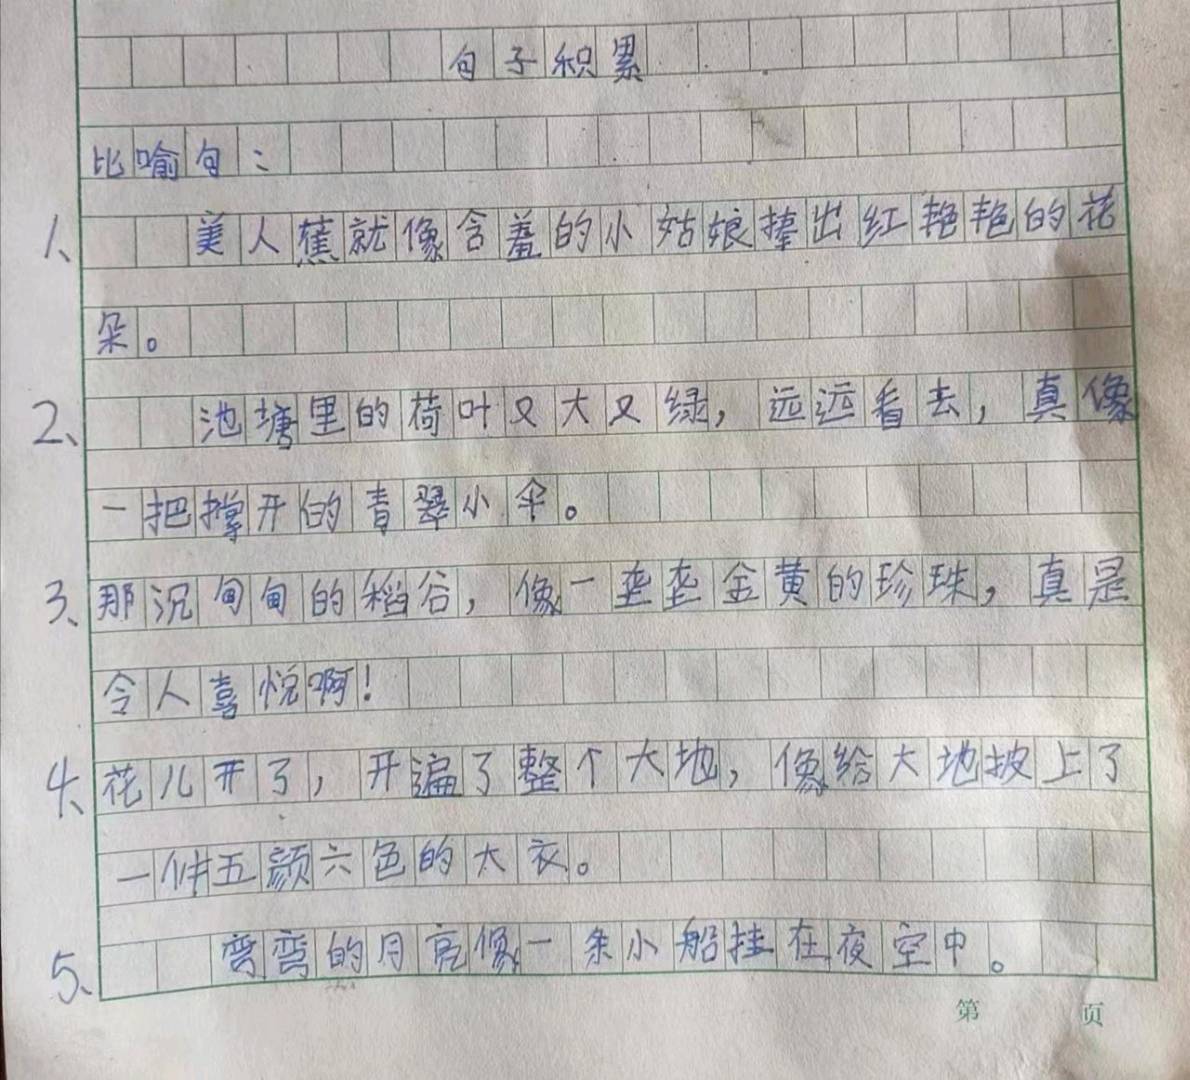 句子积累
比喻句:
1、美人蕉就像含羞的小姑娘捧出红艳艳的花
朵。
2、池塘里的荷叶又大又绿，远远看去，真像
一把撑开的青翠小伞。
3、那沉甸甸的稻谷，像一垄垄金黄的珍珠，真是
令人喜悦啊！
4、花儿开了，开遍了整个大地，像给大地披上了
一件五颜六色的大衣。
5、弯弯的月亮像一条小船挂在夜空中。
第 页